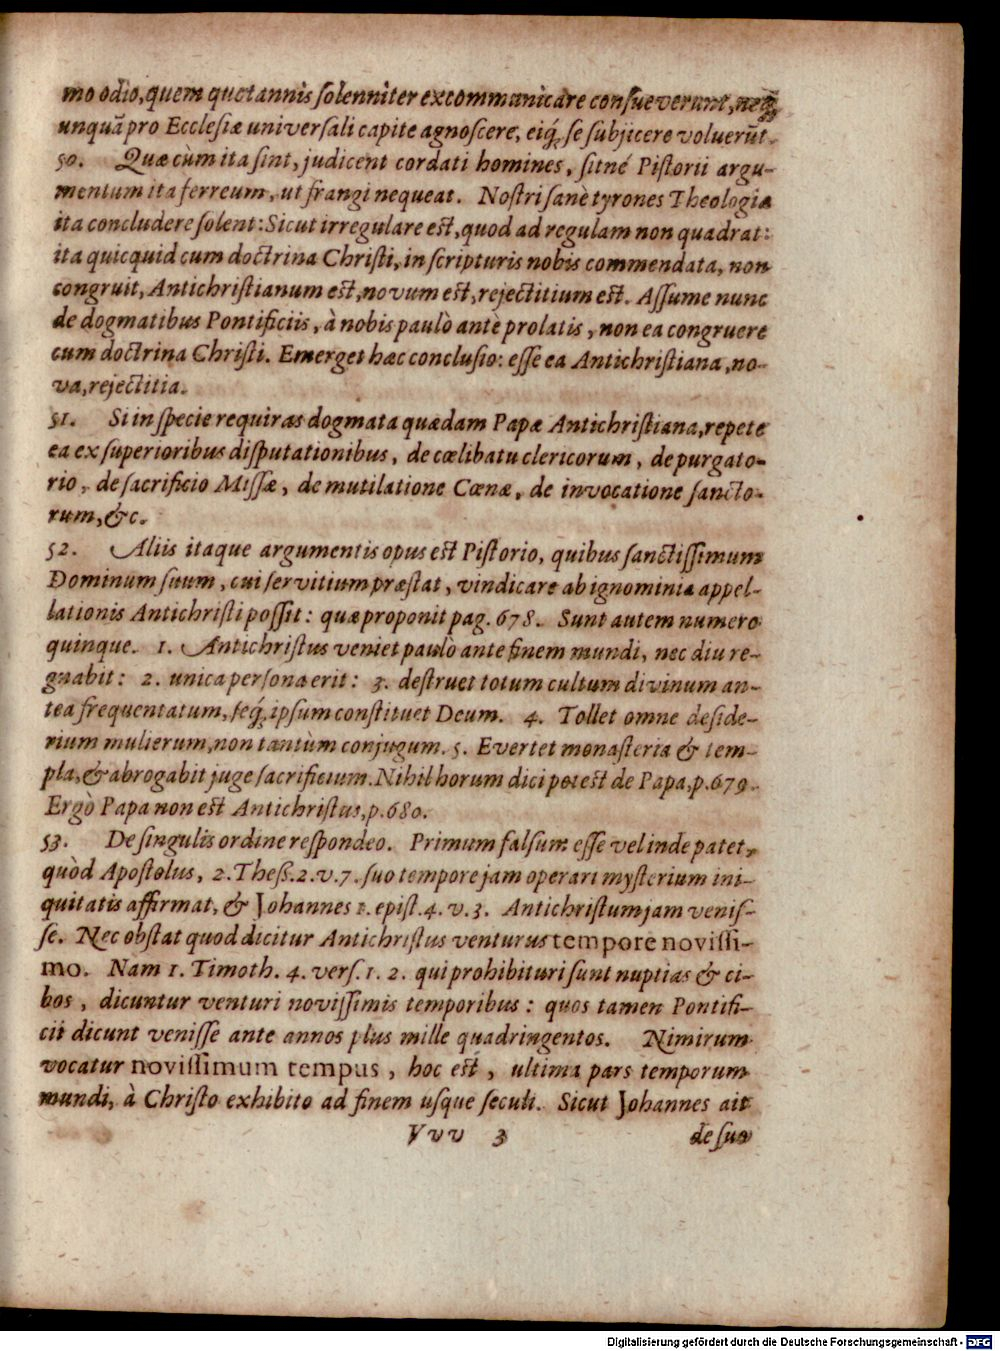 mo odio, quem quotannis solenniter excommunicare consueverunt, neq́;
unquā pro Ecclesiæ universali capite agnoscere, eiq́; se subjicere voluerūt.
50. Quæ cùm ita sint, judicent cordati homines, sitné Pistorii argu-
mentum ita ferreum, ut frangi nequeat. Nostri sanè tyrones Theologiæ
ita concludere solent: Sicut irregulare est, quod ad regulam non quadrat:
ita quicquid cum doctrina Christi, in scripturis nobis commendata, non
congruit, Antichristianum est, novum est, rejectitium est. Assume nunc
de dogmatibus Pontificiis, à nobis paulò antè prolatis, non ea congruere
cum doctrina Christi. Emerget hæc conclusio: esse ea Antichristiana, no-
va, rejectitia.
51. Si in specie requiras dogmata quædam Papæ Antichristiana, repete
ea ex superioribus disputationibus, de cœlibatu clericorum, de purgato-
rio, de sacrificio Missæ, de mutilatione Cœnæ, de invocatione sancto-
rum, &c.
52. Aliis itaque argumentis opus est Pistorio, quibus sanctissimum
Dominum suum, cui servitium præstat, vindicare ab ignominia appel-
lationis Antichristi possit: quæ proponit pag. 678. Sunt autem numero
quinque. 1. Antichristus veniet paulò ante finem mundi, nec diu re-
gnabit: 2. unica persona erit: 3. destruet totum cultum divinum an-
tea frequentatum, seq́; ipsum constituet Deum. 4. Tollet omne deside-
rium mulierum, non tantùm conjugum. 5. Evertet monasteria & tem-
pla, & abrogabit juge sacrificium. Nihil horum dici potest de Papa, p. 679.
Ergò Papa non est Antichristus, p. 680.
53. De singulis ordine respondeo. Primum falsum esse vel inde patet,
quòd Apostolus, 2. Thess. 2. v. 7. suo tempore jam operari mysterium ini-
quitatis affirmat, & Johannes 1. epist. 4. v. 3. Antichristum jam venis-
se. Nec obstat quod dicitur Antichristus venturus tempore novissi-
mo. Nam 1. Timoth. 4. vers. 1. 2. qui prohibituri sunt nuptias & ci-
bos, dicuntur venturi novissimis temporibus: quos tamen Pontifi-
cii dicunt venisse ante annos plus mille quadringentos. Nimirum
vocatur novissimum tempus, hoc est, ultima pars temporum
mundi, à Christo exhibito ad finem usque seculi. Sicut Johannes ait
Vvv 3 de suo
Digitalisierung gefördert durch die Deutsche Forschungsgemeinschaft - DFG